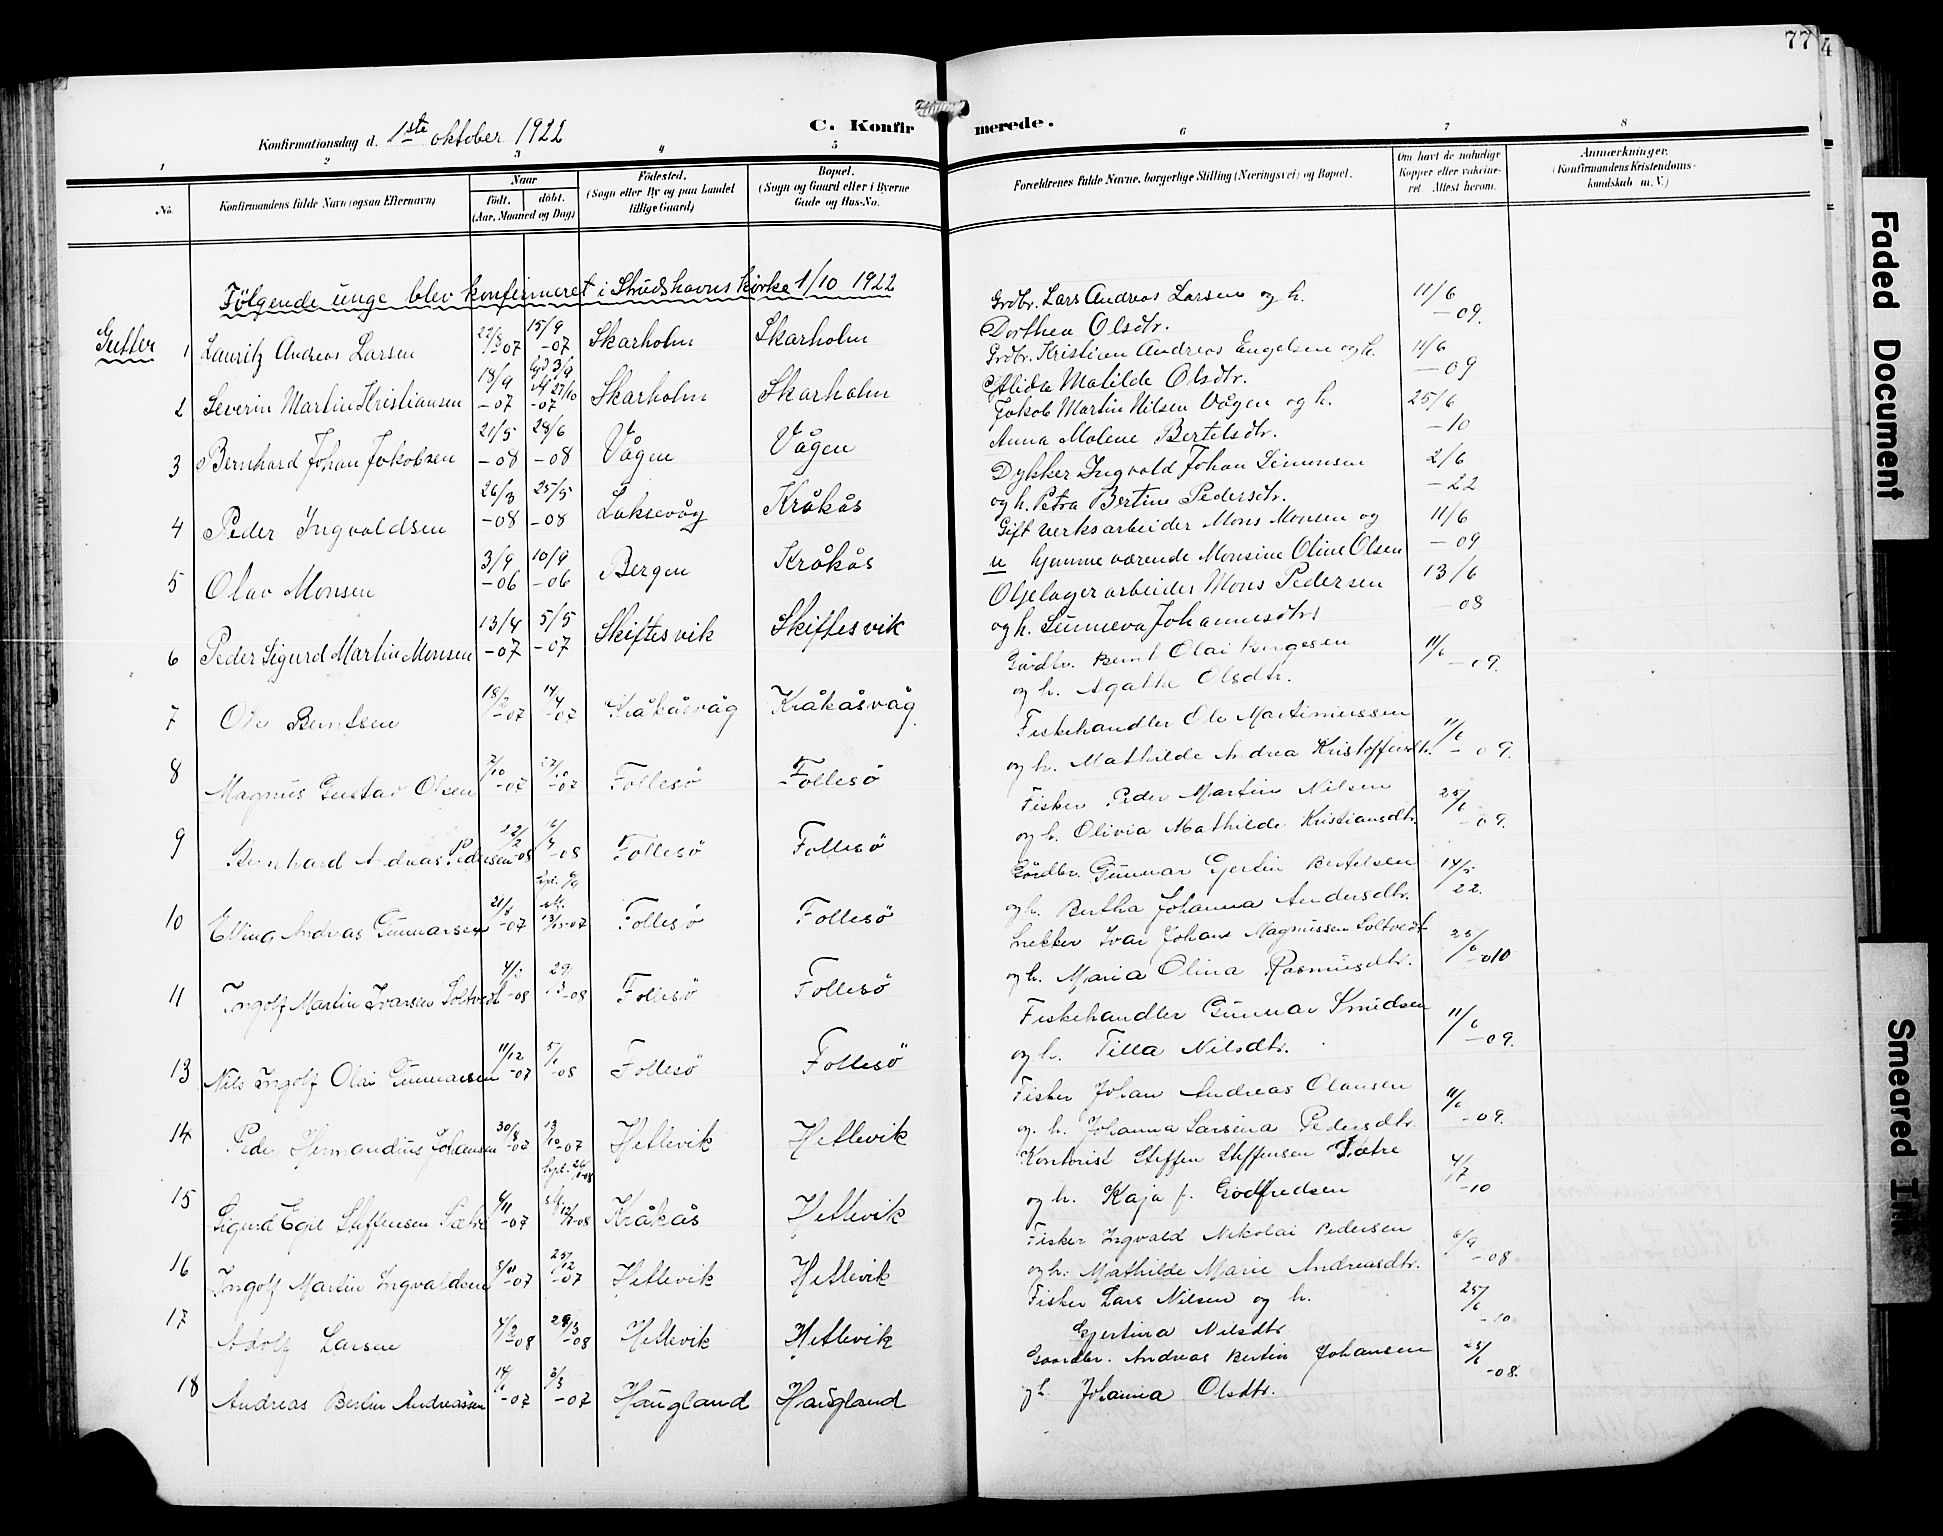 77
4
Konfirmationsdag d. 1ste oktober 1922
C. Konfirmerede.
1 2 3 4 5 6 7 8
No.
Konfirmandens fulde Navn (ogsaa Efternavn)
Naar
født. døbt.
(Aar, Maaned og Dag)
Fødested.
(Sogn eller By og paa Landet
tillige Gaard)
Bopæl.
(Sogn og Gaard eller i Byerne
Gade og Hus-No.
Forældrenes fulde Navne, borgerlige Stilling (Næringsvei) og Bopæl.
Om havt de naturlige
Kopper eller vakcine-
ret. Attest herom.
Anmærkninger.
(Konfirmandens Kristendoms-
kundskab m. V.)
Følgende unge blev konfirmeret i Strudshavns kirke 1/10 1922
Gutter
1 Lauritz Andreas Larsen 22/8 -07 15/9 -07 Skarholm Skarholm Grdbr. Lars Andreas Larsen og h. 11/6 -09.
Dorthea Olsdtr.
2 Severin Martin Kristiansen 18/9 -07 27/10 -07 Skarholm Skarholm Grdbr. Kristian Andreas Engelsen og h. 11/6 -09
Alida Matilde Olsdtr.
3 Bernhard Johan Jakobsen 21/5 -08 28/6 -08 Vågen Vågen Jakob Martin Nilsen Vågen og h. 25/6 -10
Anna Malene Bertelsdtr.
4 Peder Ingvaldsen 26/3 -08 25/5 -08 Laksevåg Kråkås Dykker Ingvald Johan Simonsen 2/6 -22
og h. Petra Bertine Pedersdtr.
5 Olav Monsen 3/9 -06 10/9 -06 Bergen Kråkås Gift verksarbeider Mons Monsen og 11/6 -09
u hjemmeværende Monsine Oline Olsen
6 Peder Sigurd Martin Monsen 13/4 -07 5/5 -07 Skiftesvik Skiftesvik Oljelagerarbeider Mons Pedersen 13/6 -08
og h. Sunneva Johannesdtr.
7 Ole Berntsen -07 -07 Kråkåsvåg Kråkåsvåg Gårdbr. Bernt Olai Børgesen 11/6 -09.
og h. Agathe Olsdtr.
8 Magnus Gustav Olsen 7/10 -07 27/10 -07 Follesö Follesö Fiskehandler Ole Martinussen 11/6 -09.
og h. Mathilde Andrea Kristoffersdtr.
9 Bernhard Andreas Pedersen -08 -08 Follesö Follesö Fisker Peder Martin Nilsen 25/6 -09.
og h. Olivia Mathilde Kristiansdtr.
10 Elling Andreas Gunnarsen -07 13/10-07 Follesö Follesö Gårdbr. Gunnar Gjertin Bertelsen 14/5 22.
og h. Bertha Johanna Andersdtr.
11 Ingolf Martin Ivarsen Soltvedt -08 29/3 -08 Follesö Follesö Lekter Ivar Johan Magnussen Soltvedt 25/6 -010
og h. Maria Olina Rasmusdtr.
13 Nils Ingolf Olai Gunnarsen 11/12 -07 5/1 -08 Follesö Follesö Fiskehandler Gunnar Knudsen 11/6 -09.
og h. Tilla Nilsdtr.
14 Peder Hermandius Johansen 30/8 -07 13/10 -07 Hetlevik Hetlevik Fisker Johan Andreas Olausen 11/6 -09.
og h. Johanna Larsena Pedersdtr.
15 Sigurd Egil Steffensen Sætre 6/11 -07 -08 Kråkås Hetlevik Kontorist Steffen Steffensen Sætre 4/7 -10
og h. Kaja f. Godfredsen
16 Ingolf Martin Ingvaldsen 5/11 -07 25/12 -07 Hetlevik Hetlevik Fisker Ingvald Nikolai Pedersen 6/9 -08
og h. Mathilde Marie Andreasdtr.
17 Adolf Larsen 4/3 -08 29/3 -08 Hetlevik Hetlevik Fisker Lars Nilsen og h. 25/6 -10
Gjertina Nilsdtr.
18 Andreas Bertin Andreassen 14/1 -07 3/3 -07 Haugland Haugland Gaardbr. Andreas Bertin Johansen 25/6 -08.
og h. Johanna Olsdtr.
Faded Document
Smeared Ink